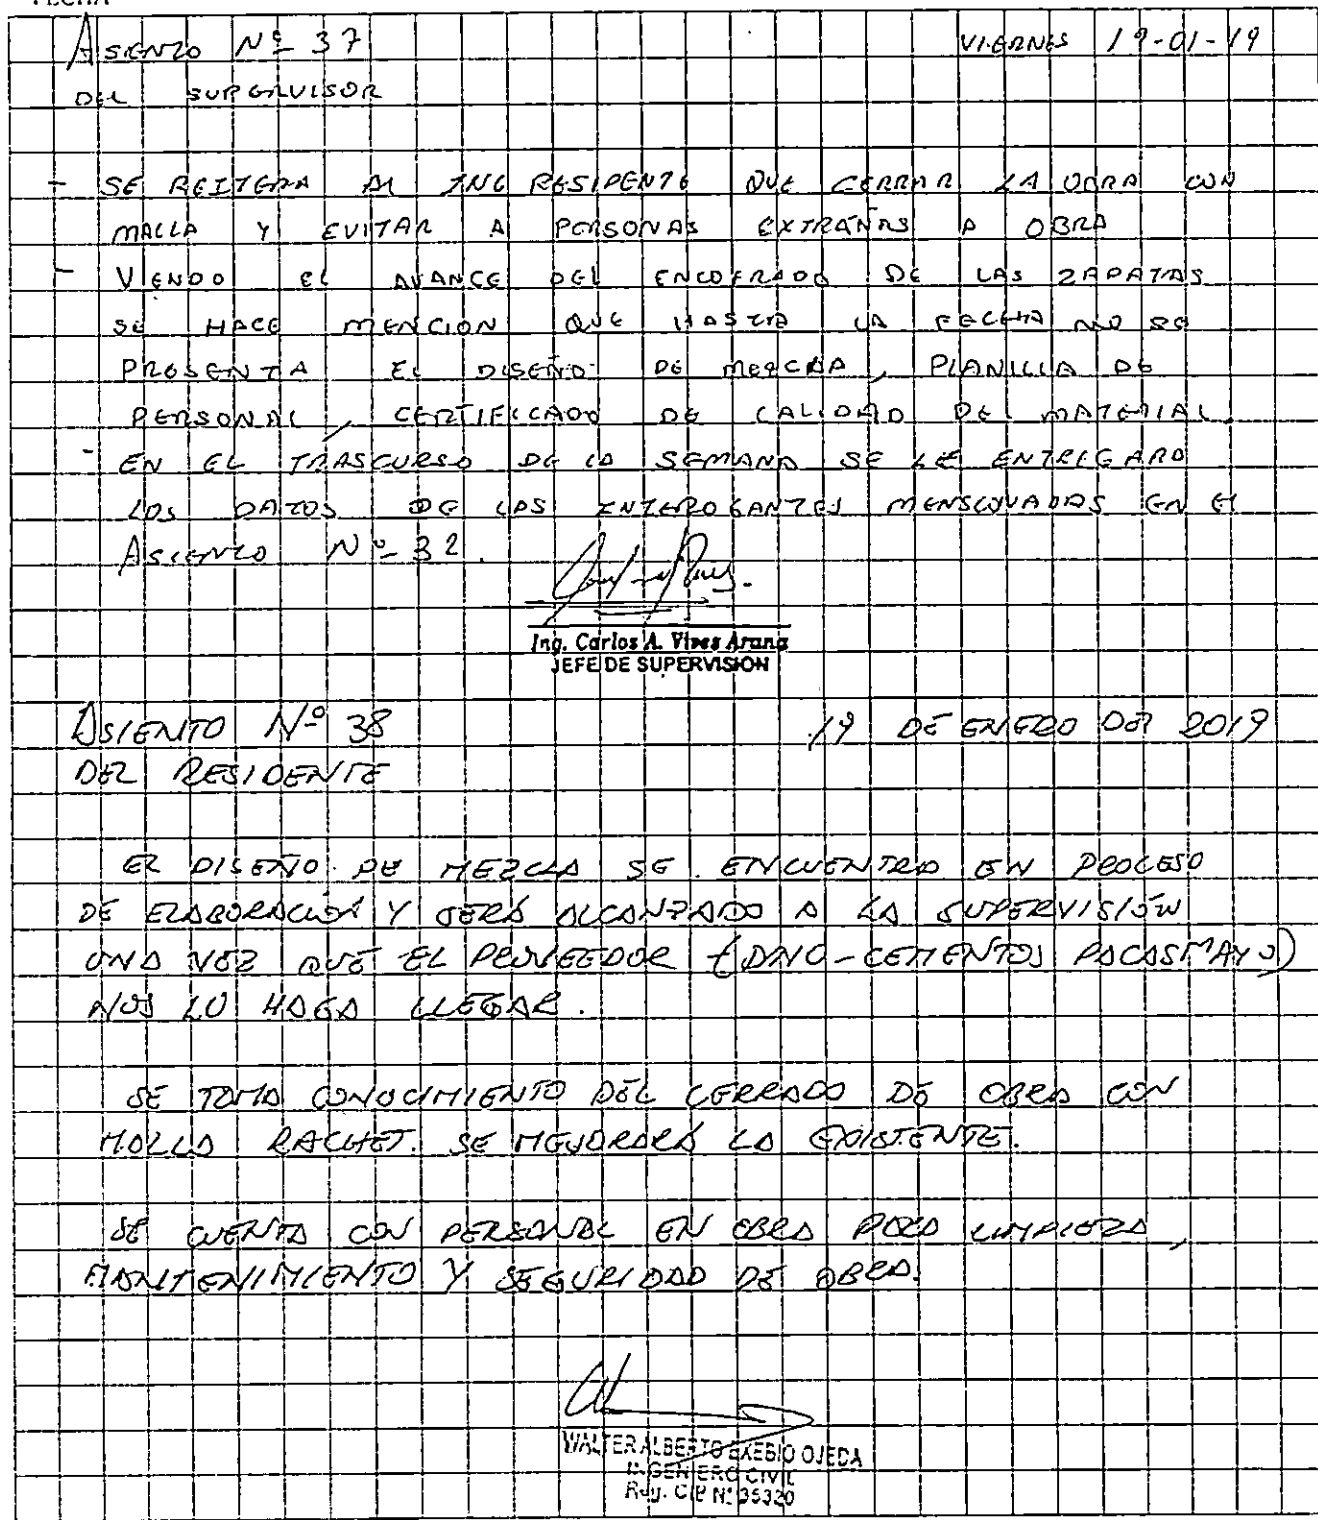 FECHA
ASIENTO Nº 37 VIERNES 19-01-19
DEL SUPERVISOR
- SE REITERA AL ING RESIDENTE QUE CERRAR LA OBRA CON
MALLA Y EVITAR A PERSONAS EXTRAÑAS A OBRA
- VIENDO EL AVANCE DEL ENCOFRADO DE LAS ZAPATAS
SE HACE MENCION QUE HASTA LA FECHA NO SE
PRESENTA EL DISEÑO DE MEZCLA, PLANILLA DE
PERSONAL, CERTIFICADO DE CALIDAD DEL MATERIAL
- EN EL TRASCURSO DE LA SEMANA SE LE ENTREGARA
LOS DATOS DE LAS INTEROGANTES MENSIONADAS EN EL
ASIENTO Nº 32.
Ing. Carlos A. Vives Arana
JEFE DE SUPERVISIÓN
ASIENTO Nº 38 19 DE ENERO DEL 2019
DEL RESIDENTE
EL DISEÑO DE MEZCLA SE ENCUENTRA EN PROCESO
DE ELABORACIÓN Y SERÁ ALCANZADO A LA SUPERVISIÓN
UNA VEZ QUE EL PROVEEDOR (DINO-CEMENTOS PACASMAYO)
NOS LO HAGA LLEGAR.
SE TOMA CONOCIMIENTO DEL CERRADO DE OBRA CON
MALLA RACHET. SE MEJORARÁ LA EXISTENTE.
SE CUENTA CON PERSONAL EN OBRA PARA LIMPIEZA,
MANTENIMIENTO Y SEGURIDAD DE OBRA.
WALTER ALBERTO EXEBIO OJEDA
INGENIERO CIVIL
Reg. CIP Nº 35320